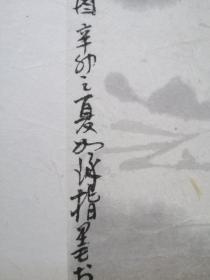 图辛卯之夏如缘指墨于